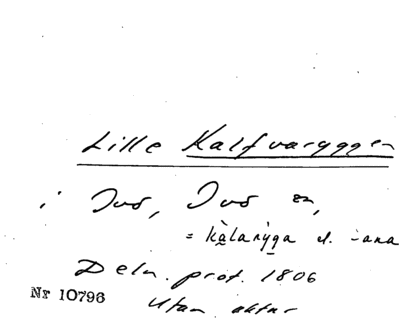 Lille Kalfvaryggen
i Ius, Ius sn,
= kàlarýga el. -ana
Deln. prot. 1806
Nr 10796
Utan aktnr